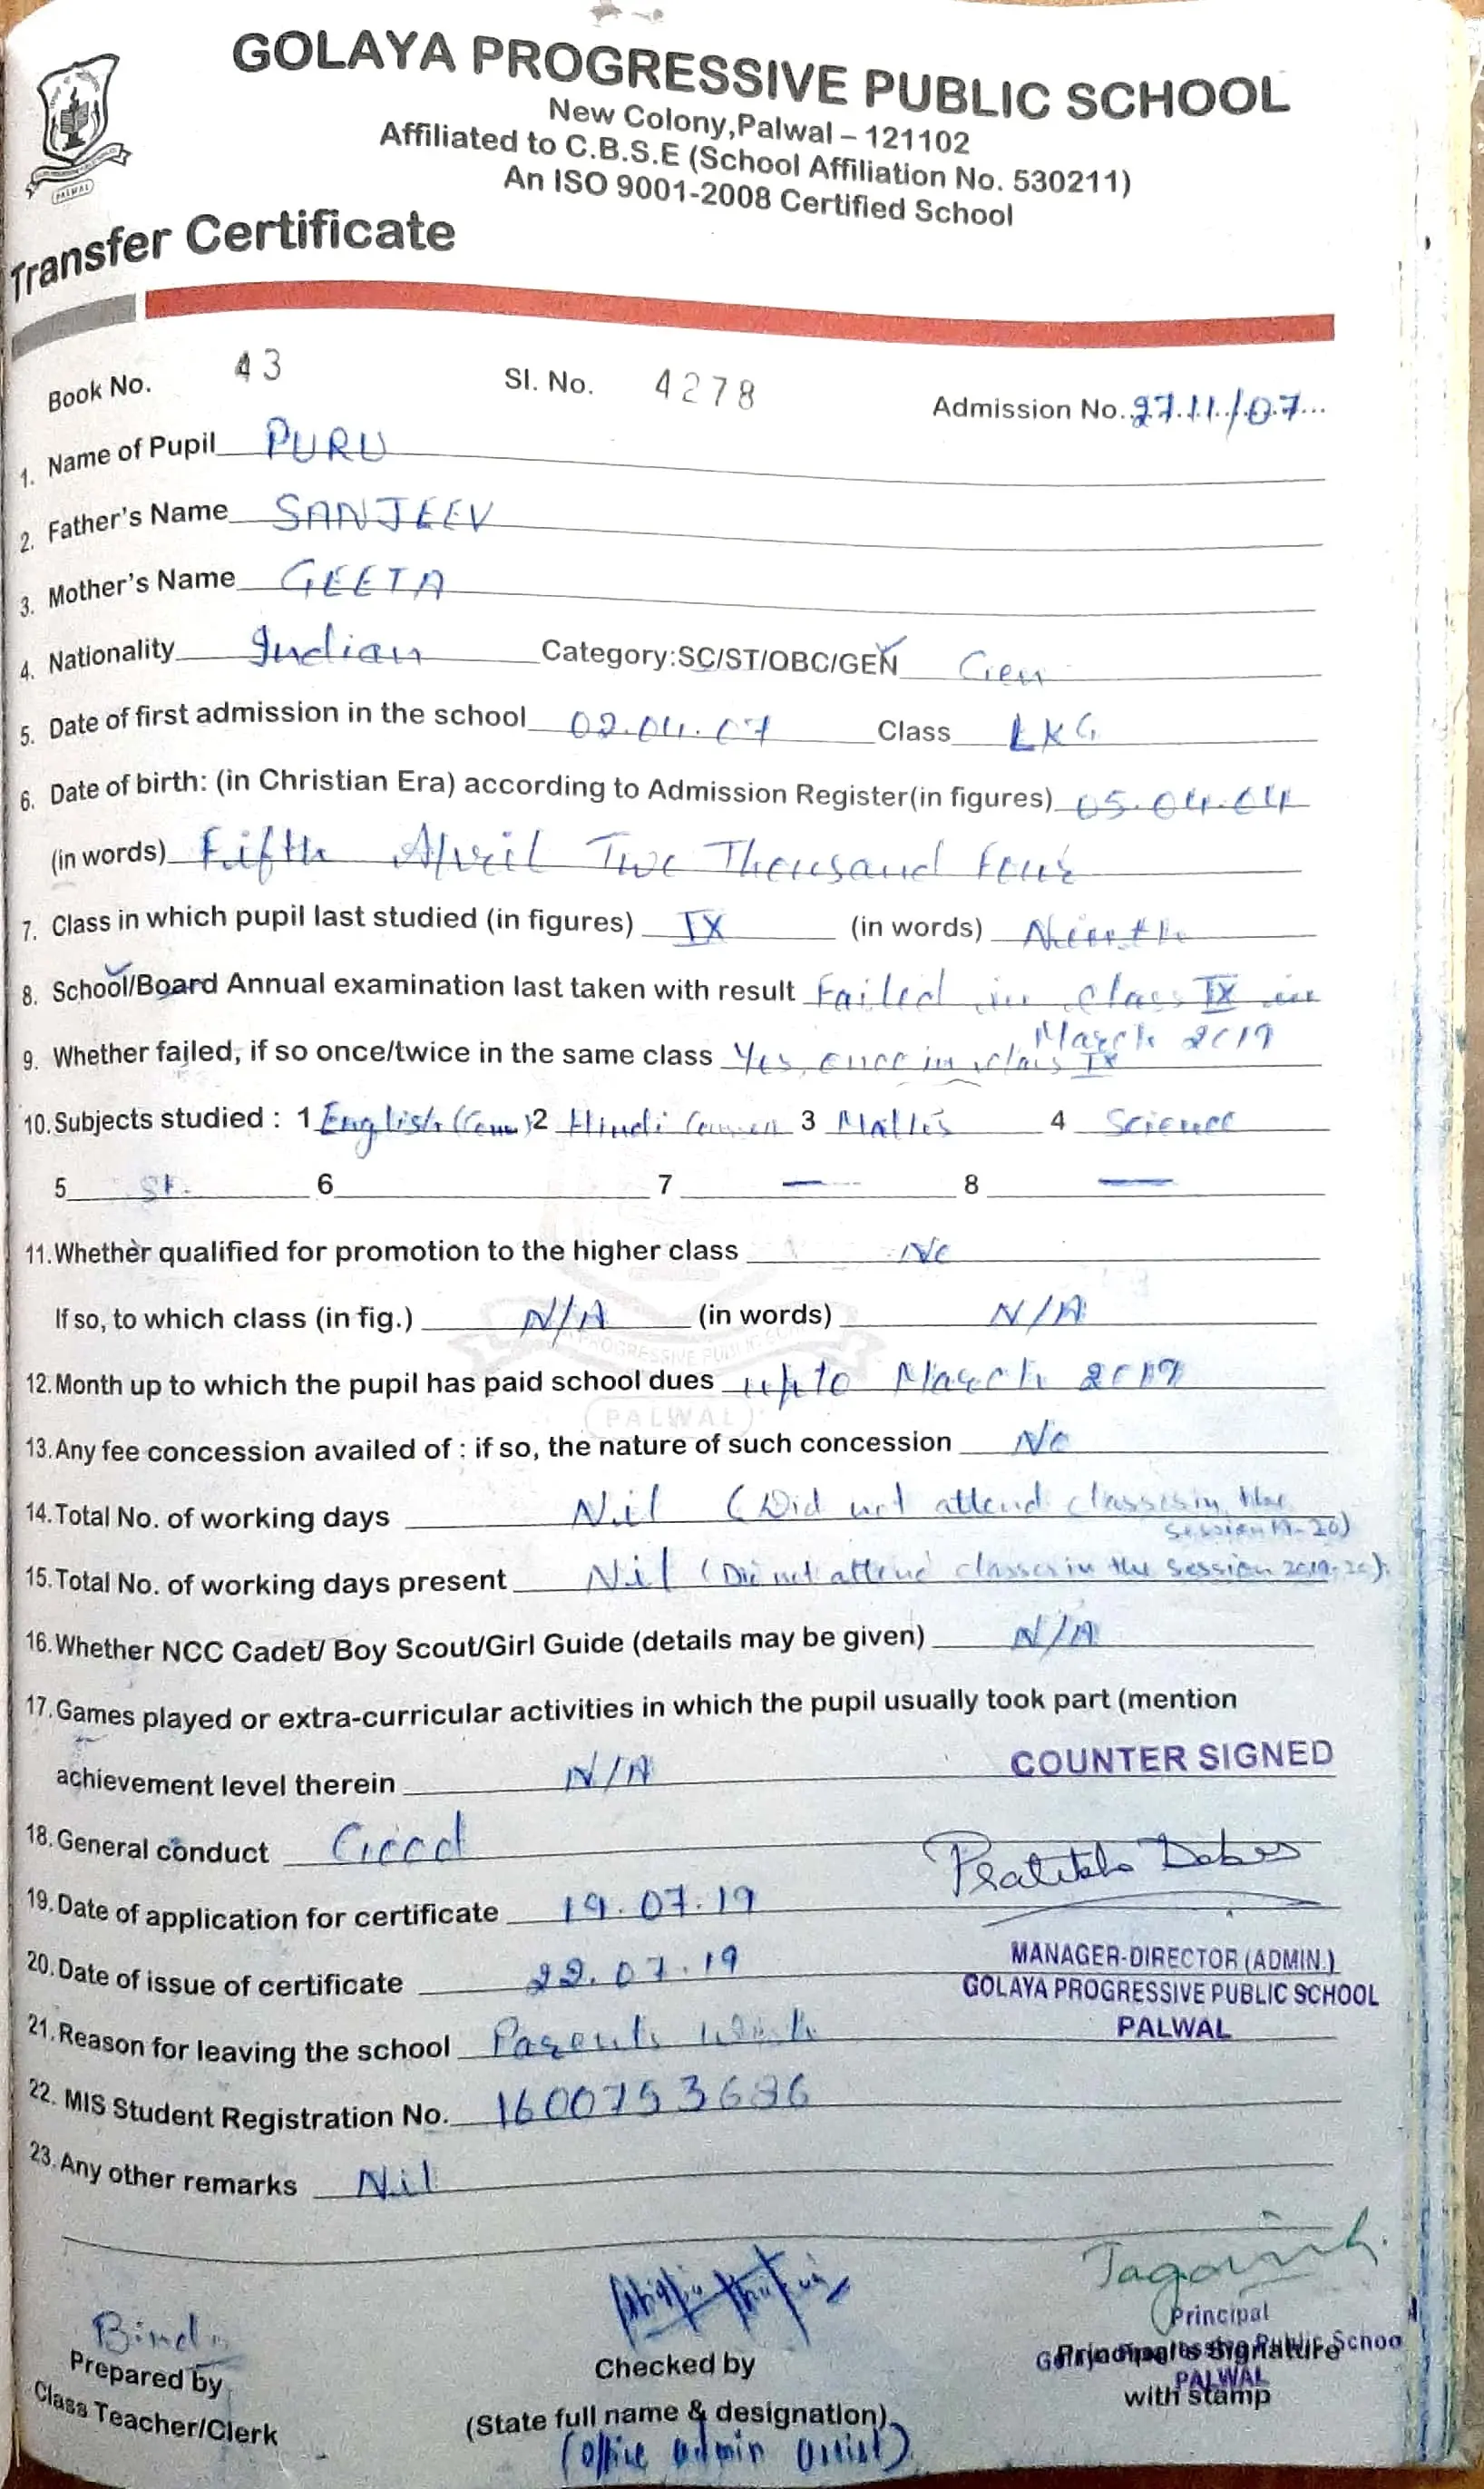 GOLAYA PROGRESSIVE PUBLIC SCHOOL
New Colony,Palwal – 121102
Affiliated to C.B.S.E (School Affiliation No. 530211)
An ISO 9001-2008 Certified School
PALWAL
Transfer Certificate
Book No. 43 Sl. No. 4278 Admission No. 2711/07
1. Name of Pupil PURU
2. Father's Name SANJEEV
3. Mother's Name GEETA
4. Nationality Indian Category:SC/ST/OBC/GEN Gen
5. Date of first admission in the school 02.04.07 Class LKG
6. Date of birth: (in Christian Era) according to Admission Register(in figures) 05.04.04
(in words) Fifth April Two Thousand Four
7. Class in which pupil last studied (in figures) IX (in words) Ninth
8. School/Board Annual examination last taken with result Failed in class IX in
March 2019
9. Whether failed, if so once/twice in the same class Yes, once in class IX
10. Subjects studied : 1 English (Com) 2 Hindi Common 3 Maths 4 Science
5 7 — 8 —
6
11. Whether qualified for promotion to the higher class No
If so, to which class (in fig.) N/A (in words) N/A
12. Month up to which the pupil has paid school dues upto March 2019
PALWAL
13. Any fee concession availed of : if so, the nature of such concession No
14. Total No. of working days Nil (Did not attend classes in the
session 19-20)
15. Total No. of working days present Nil (Did not attend classes in the session 2019-20)
16. Whether NCC Cadet/ Boy Scout/Girl Guide (details may be given) N/A
17. Games played or extra-curricular activities in which the pupil usually took part (mention
achievement level therein N/A
COUNTER SIGNED
18. General conduct Good
19. Date of application for certificate 19.07.19
20. Date of issue of certificate 22.07.19
MANAGER-DIRECTOR (ADMIN.)
GOLAYA PROGRESSIVE PUBLIC SCHOOL
PALWAL
21. Reason for leaving the school Parents wish
22. MIS Student Registration No. 1600753686
23. Any other remarks Nil
Prepared by
Class Teacher/Clerk
Checked by
(State full name & designation)
(office admin assist)
Principal
Golaya Progressive Public School
PALWAL
Principal's Signature
with stamp